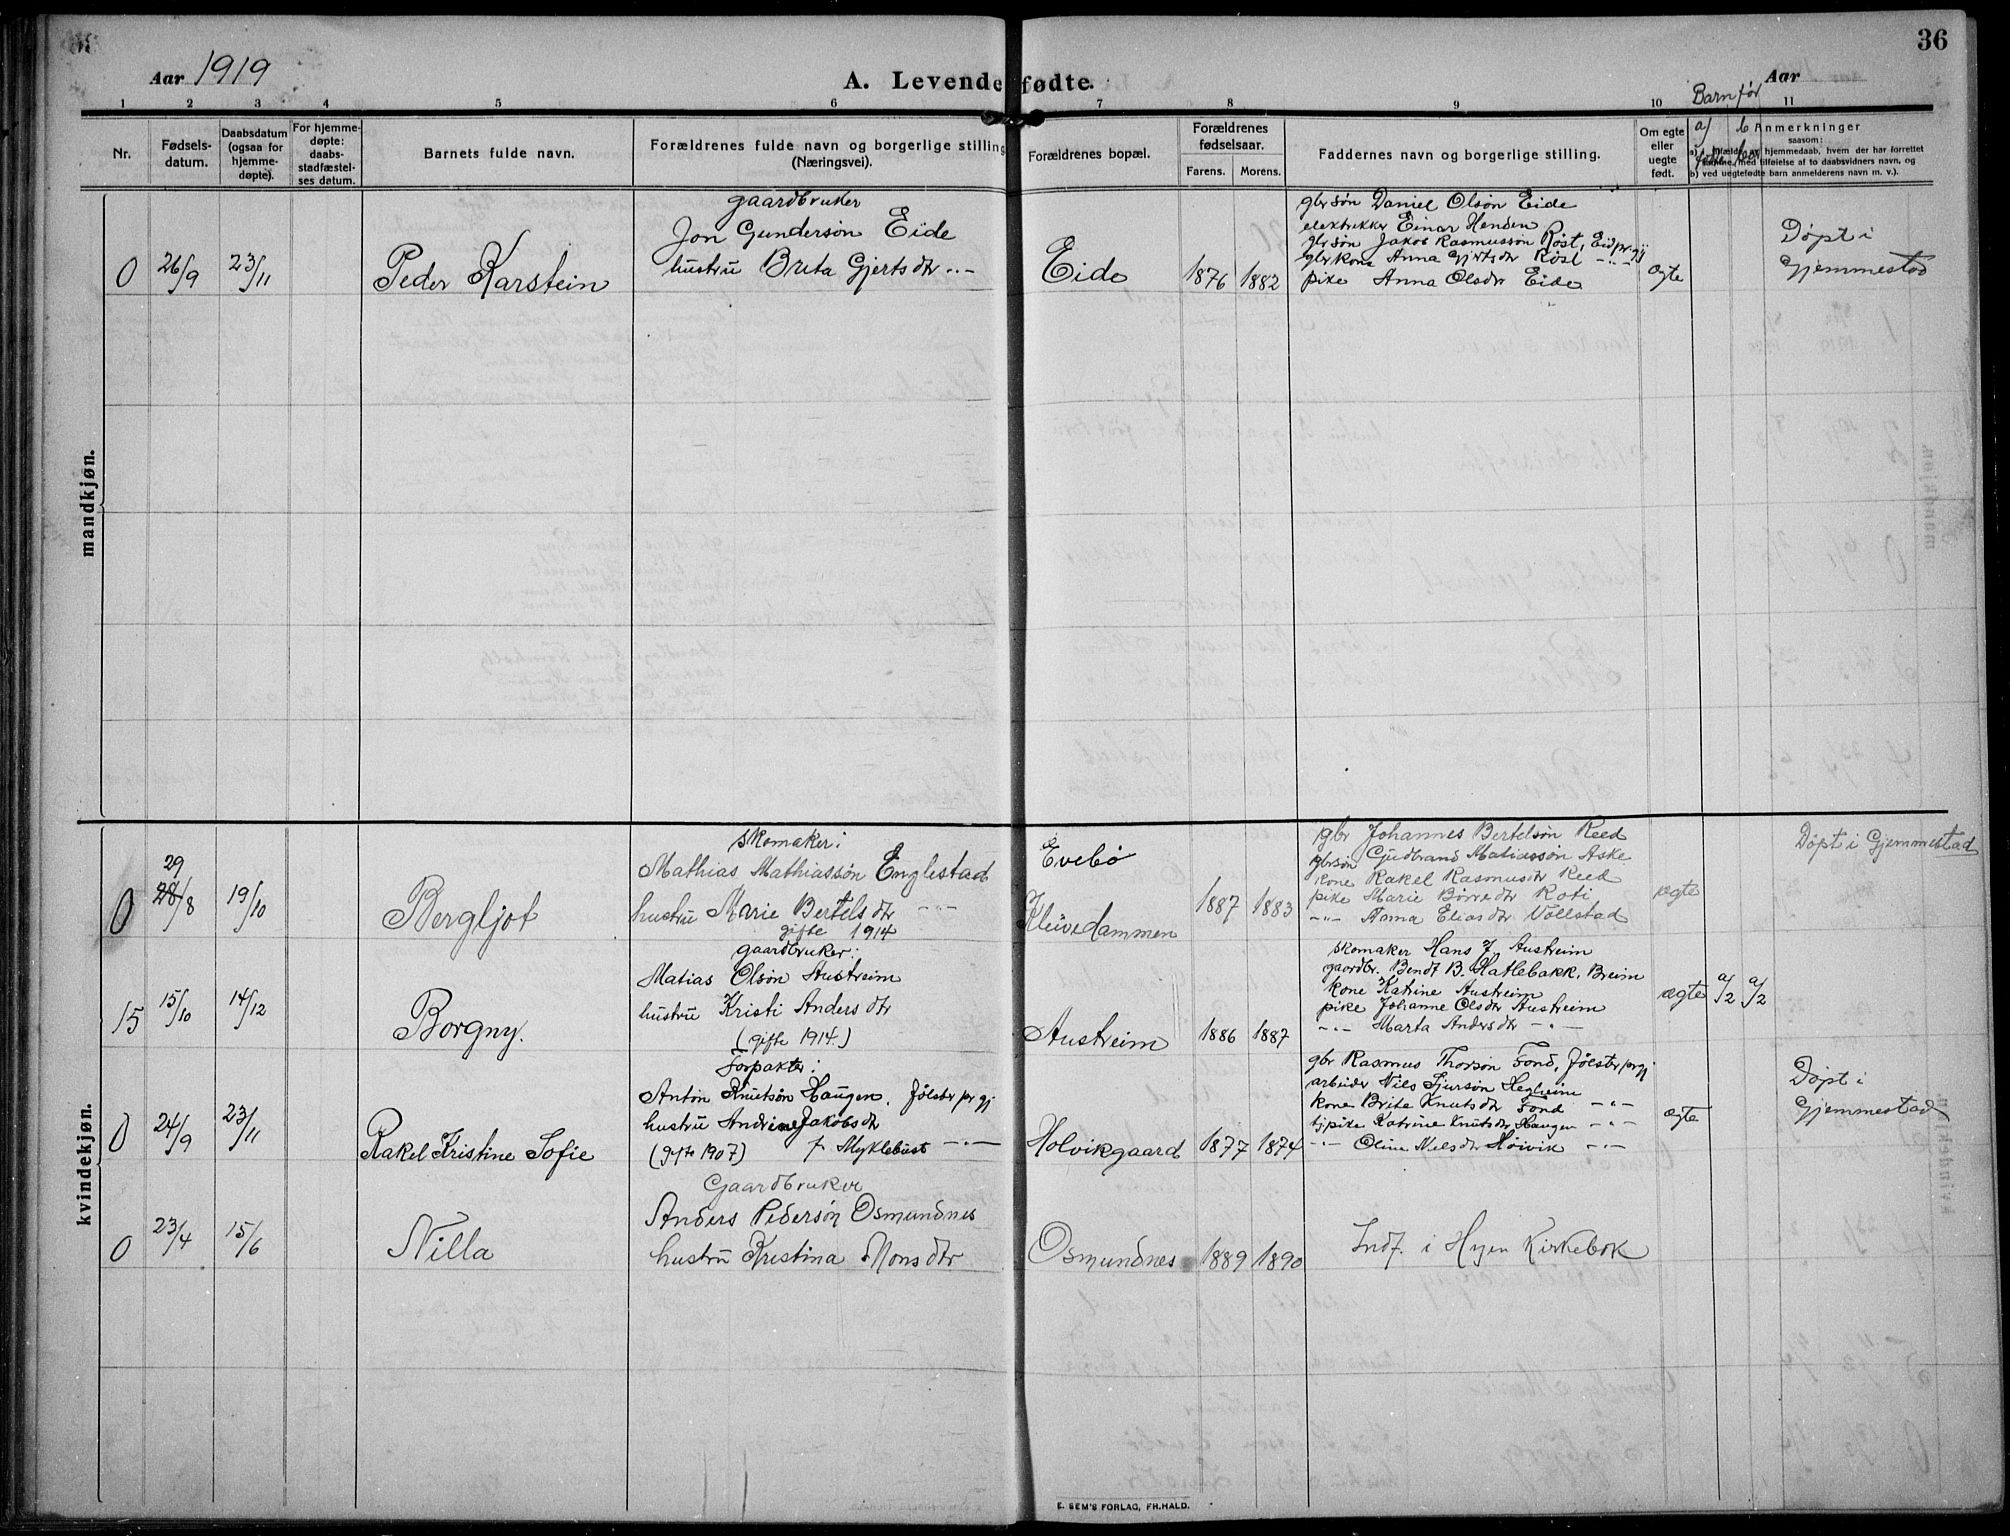 36
Aar 1919
A. Levendefødte.
Aar
Barn før
1 2 3 4 5 6 7 8 9 10 11
Nr.
Fødsels-
datum.
Daabsdatum
(ogsaa for
hjemme-
døpte).
For hjemme-
døpte:
daabs-
stadfæstel-
ses datum.
Barnets fulde navn.
Forældrenes fulde navn og borgerlige stilling
(Næringsvei).
Forældrenes bopæl.
Forældrenes
fødselsaar.
Farens. Morens.
Faddernes navn og borgerlige stilling.
Om egte
eller
uegte
født.
a/ b
Anmerkninger
saasom:
hjemmedaab, hvem der har forrettet
samme, med tilføielse af to daabsvidners navn, og
b) ved uegtefødte barn anmelderens navn m. v.).
mandkjøn.
0 26/9 23/11
Peder Karstein
gaardbruker
Jon Gundersøn Eide
hustru Brita Gjertsdtr -"-
Eide
1876 1882
gbrsøn Daniel Olsøn Eide
elektrikker Einar Henden
gbrsøn Jakob Rasmussøn Röst, Eid pr.gj
gbrkone Anna Gjertsdtr Röst -"-
pike Anna Olsdtr Eide
egte
Døpt i
Gjemmestad
kvindekjøn.
0 29 28/8 19/10
Bergljot
skomaker:
Mathias Mathiassøn Englestad
hustru Marie Bertelsdtr -"-
gifte 1914
Evebö
Kleivedammen
1887 1883
gbr Johannes Bertelsøn Reed
gbrsøn Gudbrand Matiassøn Aske
kone Rakel Rasmusdtr Reed
pike Marie Börredtr Roti
-"- Anna Eliasdtr Vollstad
egte
Døpt i Gjemmestad
15 15/10 14/12
Borgny.
gaardbruker:
Matias Olsøn Austreim
hustru Kristi Andersdtr
(gifte 1914.)
Austreim
1886 1887
skomaker Hans J. Austreim
gaardbr. Bendt B. Hatlebakk, Breim
kone Katrine Austreim
pike Johanne Olsdtr Austreim
-"- Marta Andersdtr -"-
egte a/2 a/2
0 24/9 23/11
Rakel Kristine Sofie
Forpakter:
Anton Knutsøn Haugen, Jølster pr gj
hustru Andrine Jakobsdtr
(gifte 1907) f. Myklebust -"-
Holvikgaard
1877 1874
gbr Rasmus Thorsøn Fond, Jølster prgj
arbeider Nils Sjursøn Hegheim
kone Brite Knutsdtr Fond -"-
tj.pike Katrine Knutsdtr Haugen -"-
-"- Oline Nielsdtr Høivik -"-
egte
Døpt i
Gjemmestad
0 23/4 15/6
Nilla
Gaardbruker
Anders Pedersøn Osmundnes
hustru Kristina Monsdtr
Osmundnes
1889 1890
Indf. i Hyen Kirkebok
E. SEM'S FORLAG, FR.HALD.